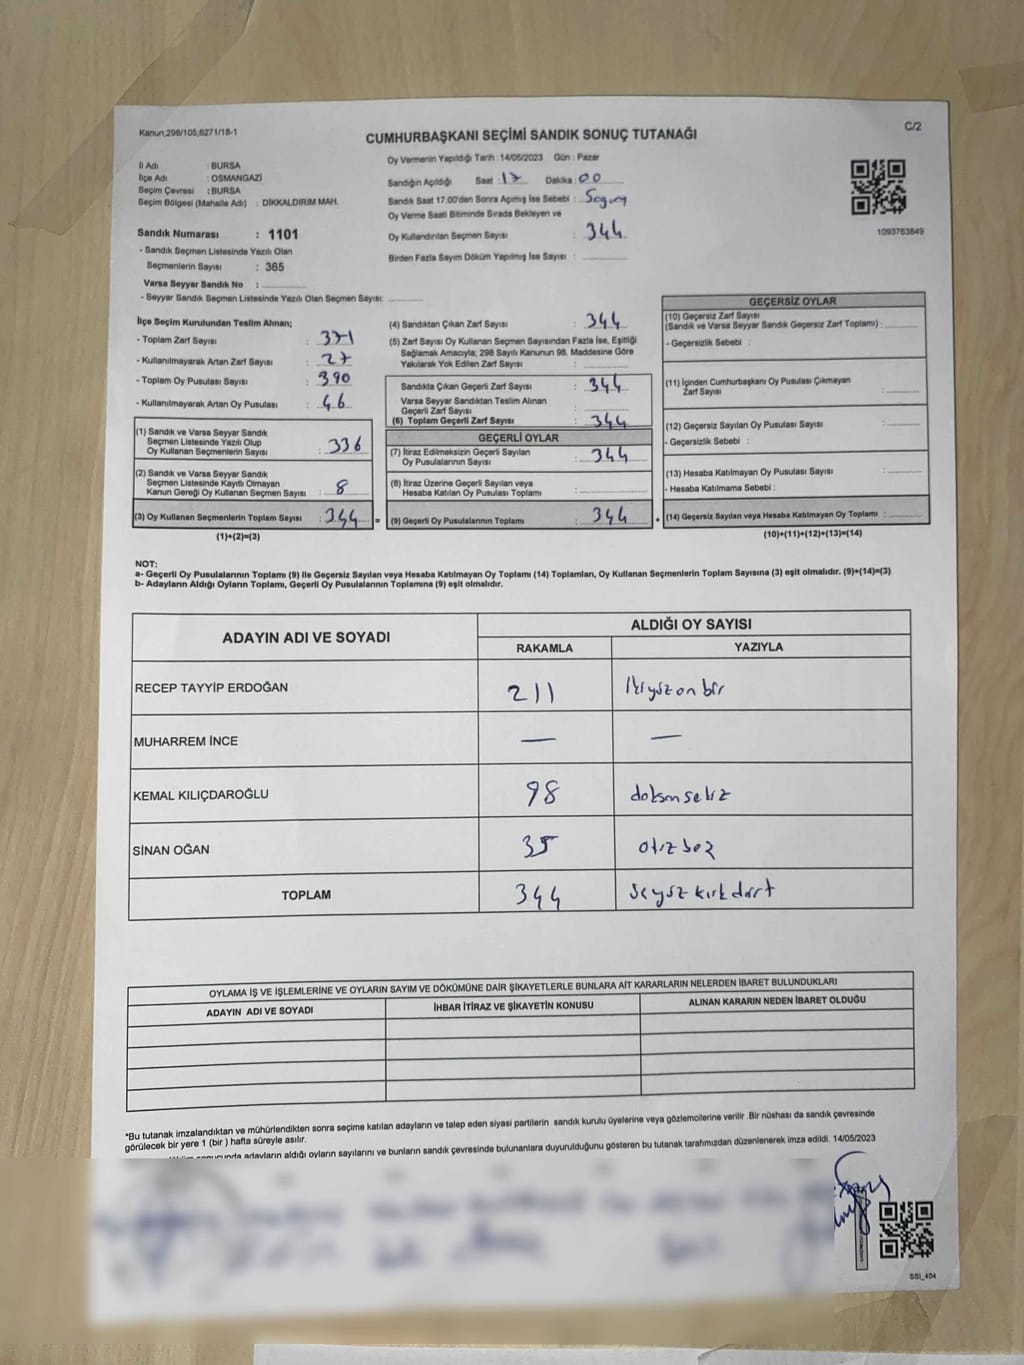 Kanun;298/105;6271/18-1
C/2
CUMHURBAŞKANI SEÇİMİ SANDIK SONUÇ TUTANAĞI
İl Adı : BURSA
İlçe Adı : OSMANGAZİ
Seçim Çevresi : BURSA
Seçim Bölgesi (Mahalle Adı) : DİKKALDIRIM MAH.
Sandık Numarası : 1101
- Sandık Seçmen Listesinde Yazılı Olan
Seçmenlerin Sayısı : 365
Varsa Seyyar Sandık No :
- Seyyar Sandık Seçmen Listesinde Yazılı Olan Seçmen Sayısı:
Oy Vermenin Yapıldığı Tarih : 14/05/2023 Gün : Pazar
Sandığın Açıldığı Saat : 17 Dakika : 00
Sandık Saat 17.00'den Sonra Açımış İse Sebebi :
Oy Verme Saati Bitiminde Sırada Bekleyen ve
Oy Kullandırılan Seçmen Sayısı : 344
Birden Fazla Sayım Döküm Yapılmış İse Sayısı :
1093763849
İlçe Seçim Kurulundan Teslim Alınan;
- Toplam Zarf Sayısı : 371
- Kullanılmayarak Artan Zarf Sayısı : 27
- Toplam Oy Pusulası Sayısı : 390
- Kullanılmayarak Artan Oy Pusulası : 46
(1) Sandık ve Varsa Seyyar Sandık
Seçmen Listesinde Yazılı Olup
Oy Kullanan Seçmenlerin Sayısı : 336
(2) Sandık ve Varsa Seyyar Sandık
Seçmen Listesinde Kayıtlı Olmayan
Kanun Gereği Oy Kullanan Seçmen Sayısı : 8
(3) Oy Kullanan Seçmenlerin Toplam Sayısı : 344 =
(1)+(2)=(3)
(4) Sandıktan Çıkan Zarf Sayısı : 344
(5) Zarf Sayısı Oy Kullanan Seçmen Sayısından Fazla İse, Eşitliği
Sağlamak Amacıyla; 298 Sayılı Kanunun 98. Maddesine Göre
Yakılarak Yok Edilen Zarf Sayısı :
Sandıkta Çıkan Geçerli Zarf Sayısı : 344
Varsa Seyyar Sandıktan Teslim Alınan
Geçerli Zarf Sayısı :
(6) Toplam Geçerli Zarf Sayısı : 344
GEÇERLİ OYLAR
(7) İtiraz Edilmeksizin Geçerli Sayılan
Oy Pusulalarının Sayısı : 344
(8) İtiraz Üzerine Geçerli Sayılan veya
Hesaba Katılan Oy Pusulası Toplamı :
(9) Geçerli Oy Pusulalarının Toplamı : 344 +
GEÇERSİZ OYLAR
(10) Geçersiz Zarf Sayısı
(Sandık ve Varsa Seyyar Sandık Geçersiz Zarf Toplamı) :
- Geçersizlik Sebebi :
(11) İçinden Cumhurbaşkanı Oy Pusulası Çıkmayan
Zarf Sayısı :
(12) Geçersiz Sayılan Oy Pusulası Sayısı :
- Geçersizlik Sebebi :
(13) Hesaba Katılmayan Oy Pusulası Sayısı :
- Hesaba Katılmama Sebebi :
(14) Geçersiz Sayılan veya Hesaba Katılmayan Oy Toplamı :
(10)+(11)+(12)+(13)=(14)
NOT:
a- Geçerli Oy Pusulalarının Toplamı (9) ile Geçersiz Sayılan veya Hesaba Katılmayan Oy Toplamı (14) Toplamları, Oy Kullanan Seçmenlerin Toplam Sayısına (3) eşit olmalıdır. (9)+(14)=(3)
b- Adayların Aldığı Oyların Toplamı, Geçerli Oy Pusulalarının Toplamına (9) eşit olmalıdır.
ADAYIN ADI VE SOYADI
ALDIĞI OY SAYISI
RAKAMLA YAZIYLA
RECEP TAYYİP ERDOĞAN 211 ikiyüzonbir
MUHARREM İNCE — —
KEMAL KILIÇDAROĞLU 98 doksansekiz
SİNAN OĞAN 35 otuzbeş
TOPLAM 344 üçyüzkırkdört
OYLAMA İŞ VE İŞLEMLERİNE VE OYLARIN SAYIM VE DÖKÜMÜNE DAİR ŞİKAYETLERLE BUNLARA AİT KARARLARIN NELERDEN İBARET BULUNDUKLARI
ADAYIN ADI VE SOYADI İHBAR İTİRAZ VE ŞİKAYETİN KONUSU ALINAN KARARIN NEDEN İBARET OLDUĞU
*Bu tutanak imzalandıktan ve mühürlendikten sonra seçime katılan adayların ve talep eden siyasi partilerin sandık kurulu üyelerine veya gözlemcilerine verilir .Bir nüshası da sandık çevresinde
görülecek bir yere 1 (bir ) hafta süreyle asılır.
adayların aldığı oyların sayılarını ve bunların sandık çevresinde bulunanlara duyurulduğunu gösteren bu tutanak tarafımızdan düzenlenerek imza edildi. 14/05/2023
SSI_404